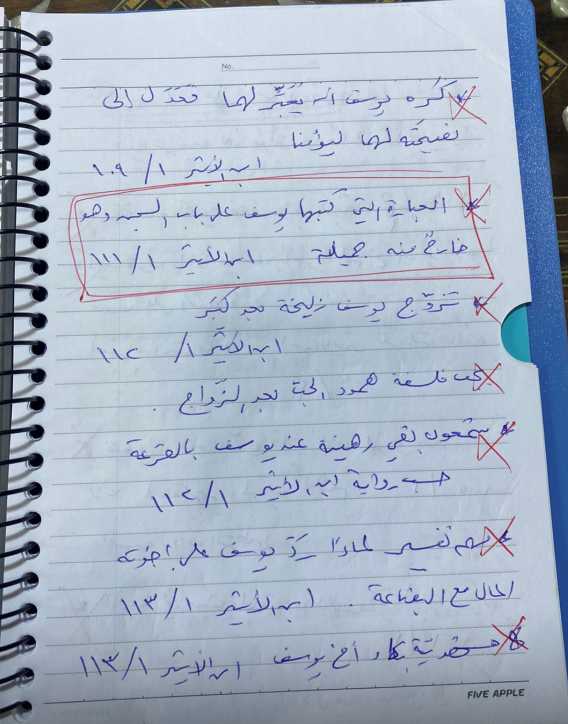 No.
* كره يوسف أن يعبّر لهما فعدل إلى
نصيحته لهما ليؤمنا
ابن الأثير ١/ ١٠٩
* العبارة التي كتبها يوسف على باب السجن وهو
خارجٌ منه جميلة ابن الأثير ١/ ١١١
* تزوّج يوسف زليخة بعد كبر
ابن الأثير ١/ ١١٢
فلسفة همود الحبّ بعد الزّواج .
* شمعون بقي رهينة عند يوسف بالقرعة
حسب رواية ابن الأثير ١/ ١١٢
* تفسير لماذا ردّ يوسف على إخوته
المال مع البضاعة . ابن الأثير ١/ ١١٣
* بكاء أخ يوسف ابن الأثير ١/ ١١٣
FIVE APPLE